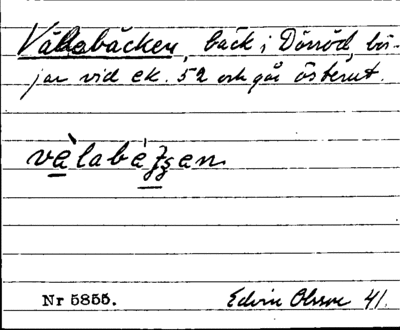 Vällebäcken, bäck i Dörröd, bör-
jar vid ek. 52 och går österut.
vèlabéʒʒen
Nr 5855.
Edvin Olsson 41.